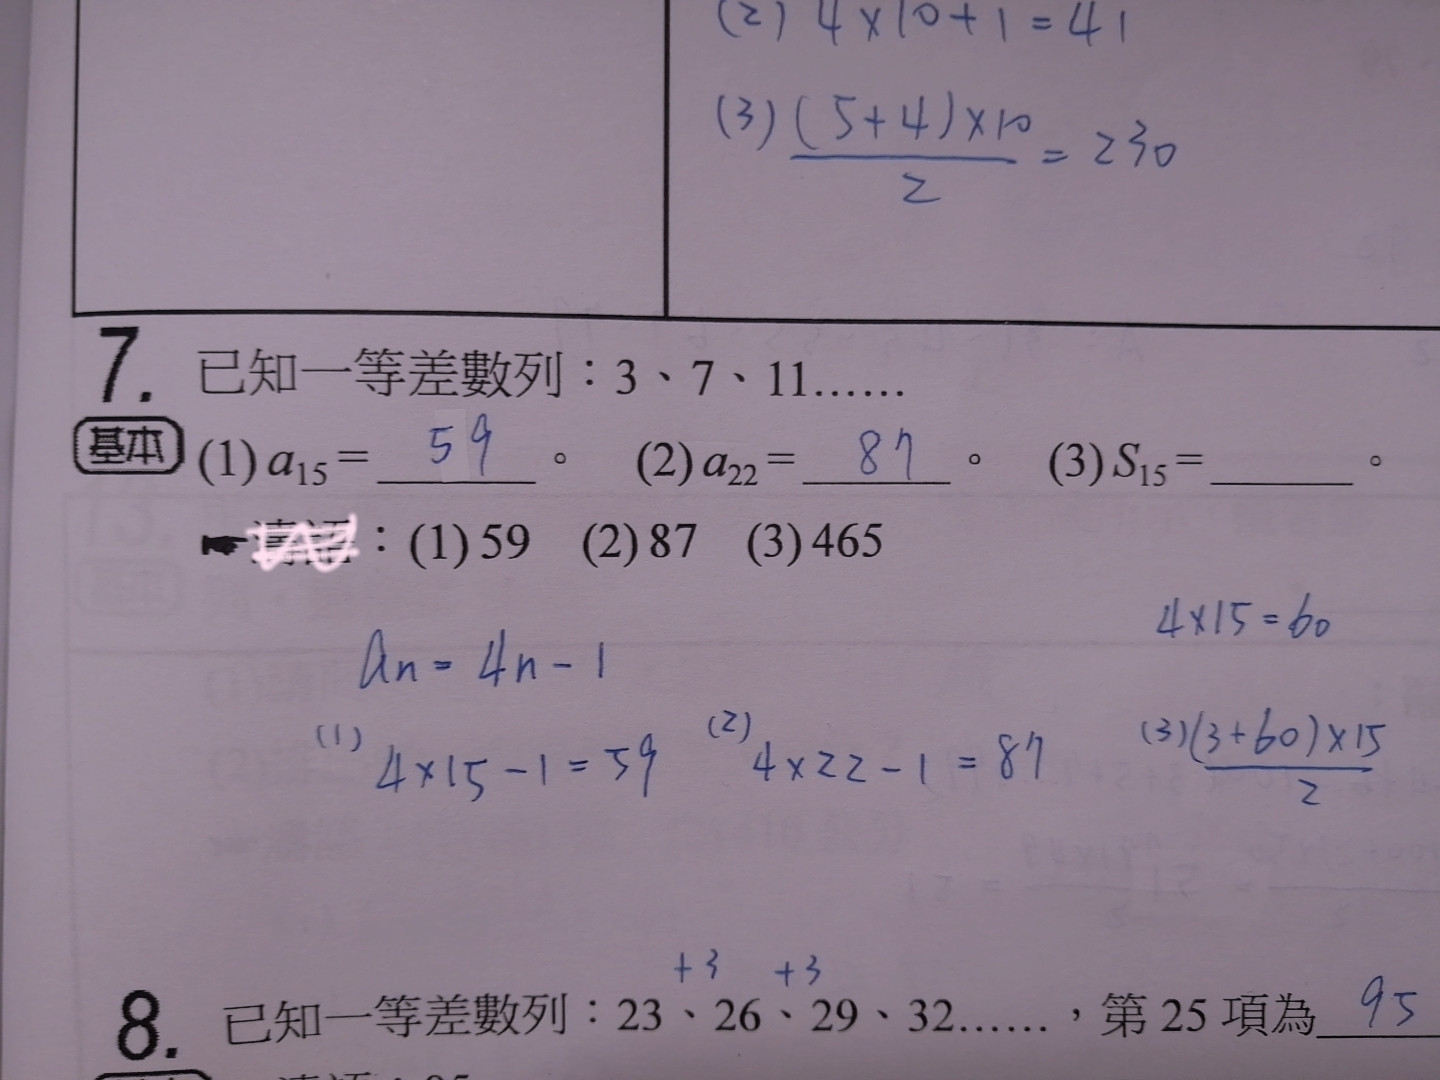 (2) 4×10+1=41
(3) (5+4)×10 / 2 = 230
7. 已知一等差數列：3、7、11……
基本 (1) a15= 59 。 (2) a22= 87 。 (3) S15= ______ 。
：(1) 59 (2) 87 (3) 465
4×15=60
an = 4n-1
(1) 4×15-1=59 (2) 4×22-1=87 (3) (3+60)×15 / 2
+3 +3
8. 已知一等差數列：23、26、29、32……，第 25 項為 95